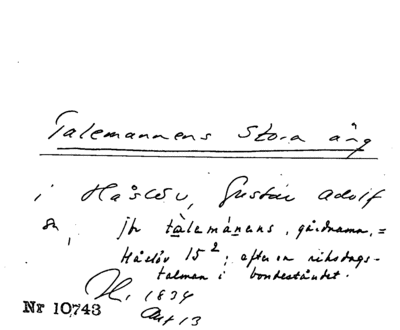 Talemannens Stora äng
i Håslöv, Gustav Adolf
sn, jfr tàlemánens, gårdnamn, =
Håslöv 15²; efter en riksdags-
talman i bondeståndet.
H. 1834
Akt 13
Nr 10743